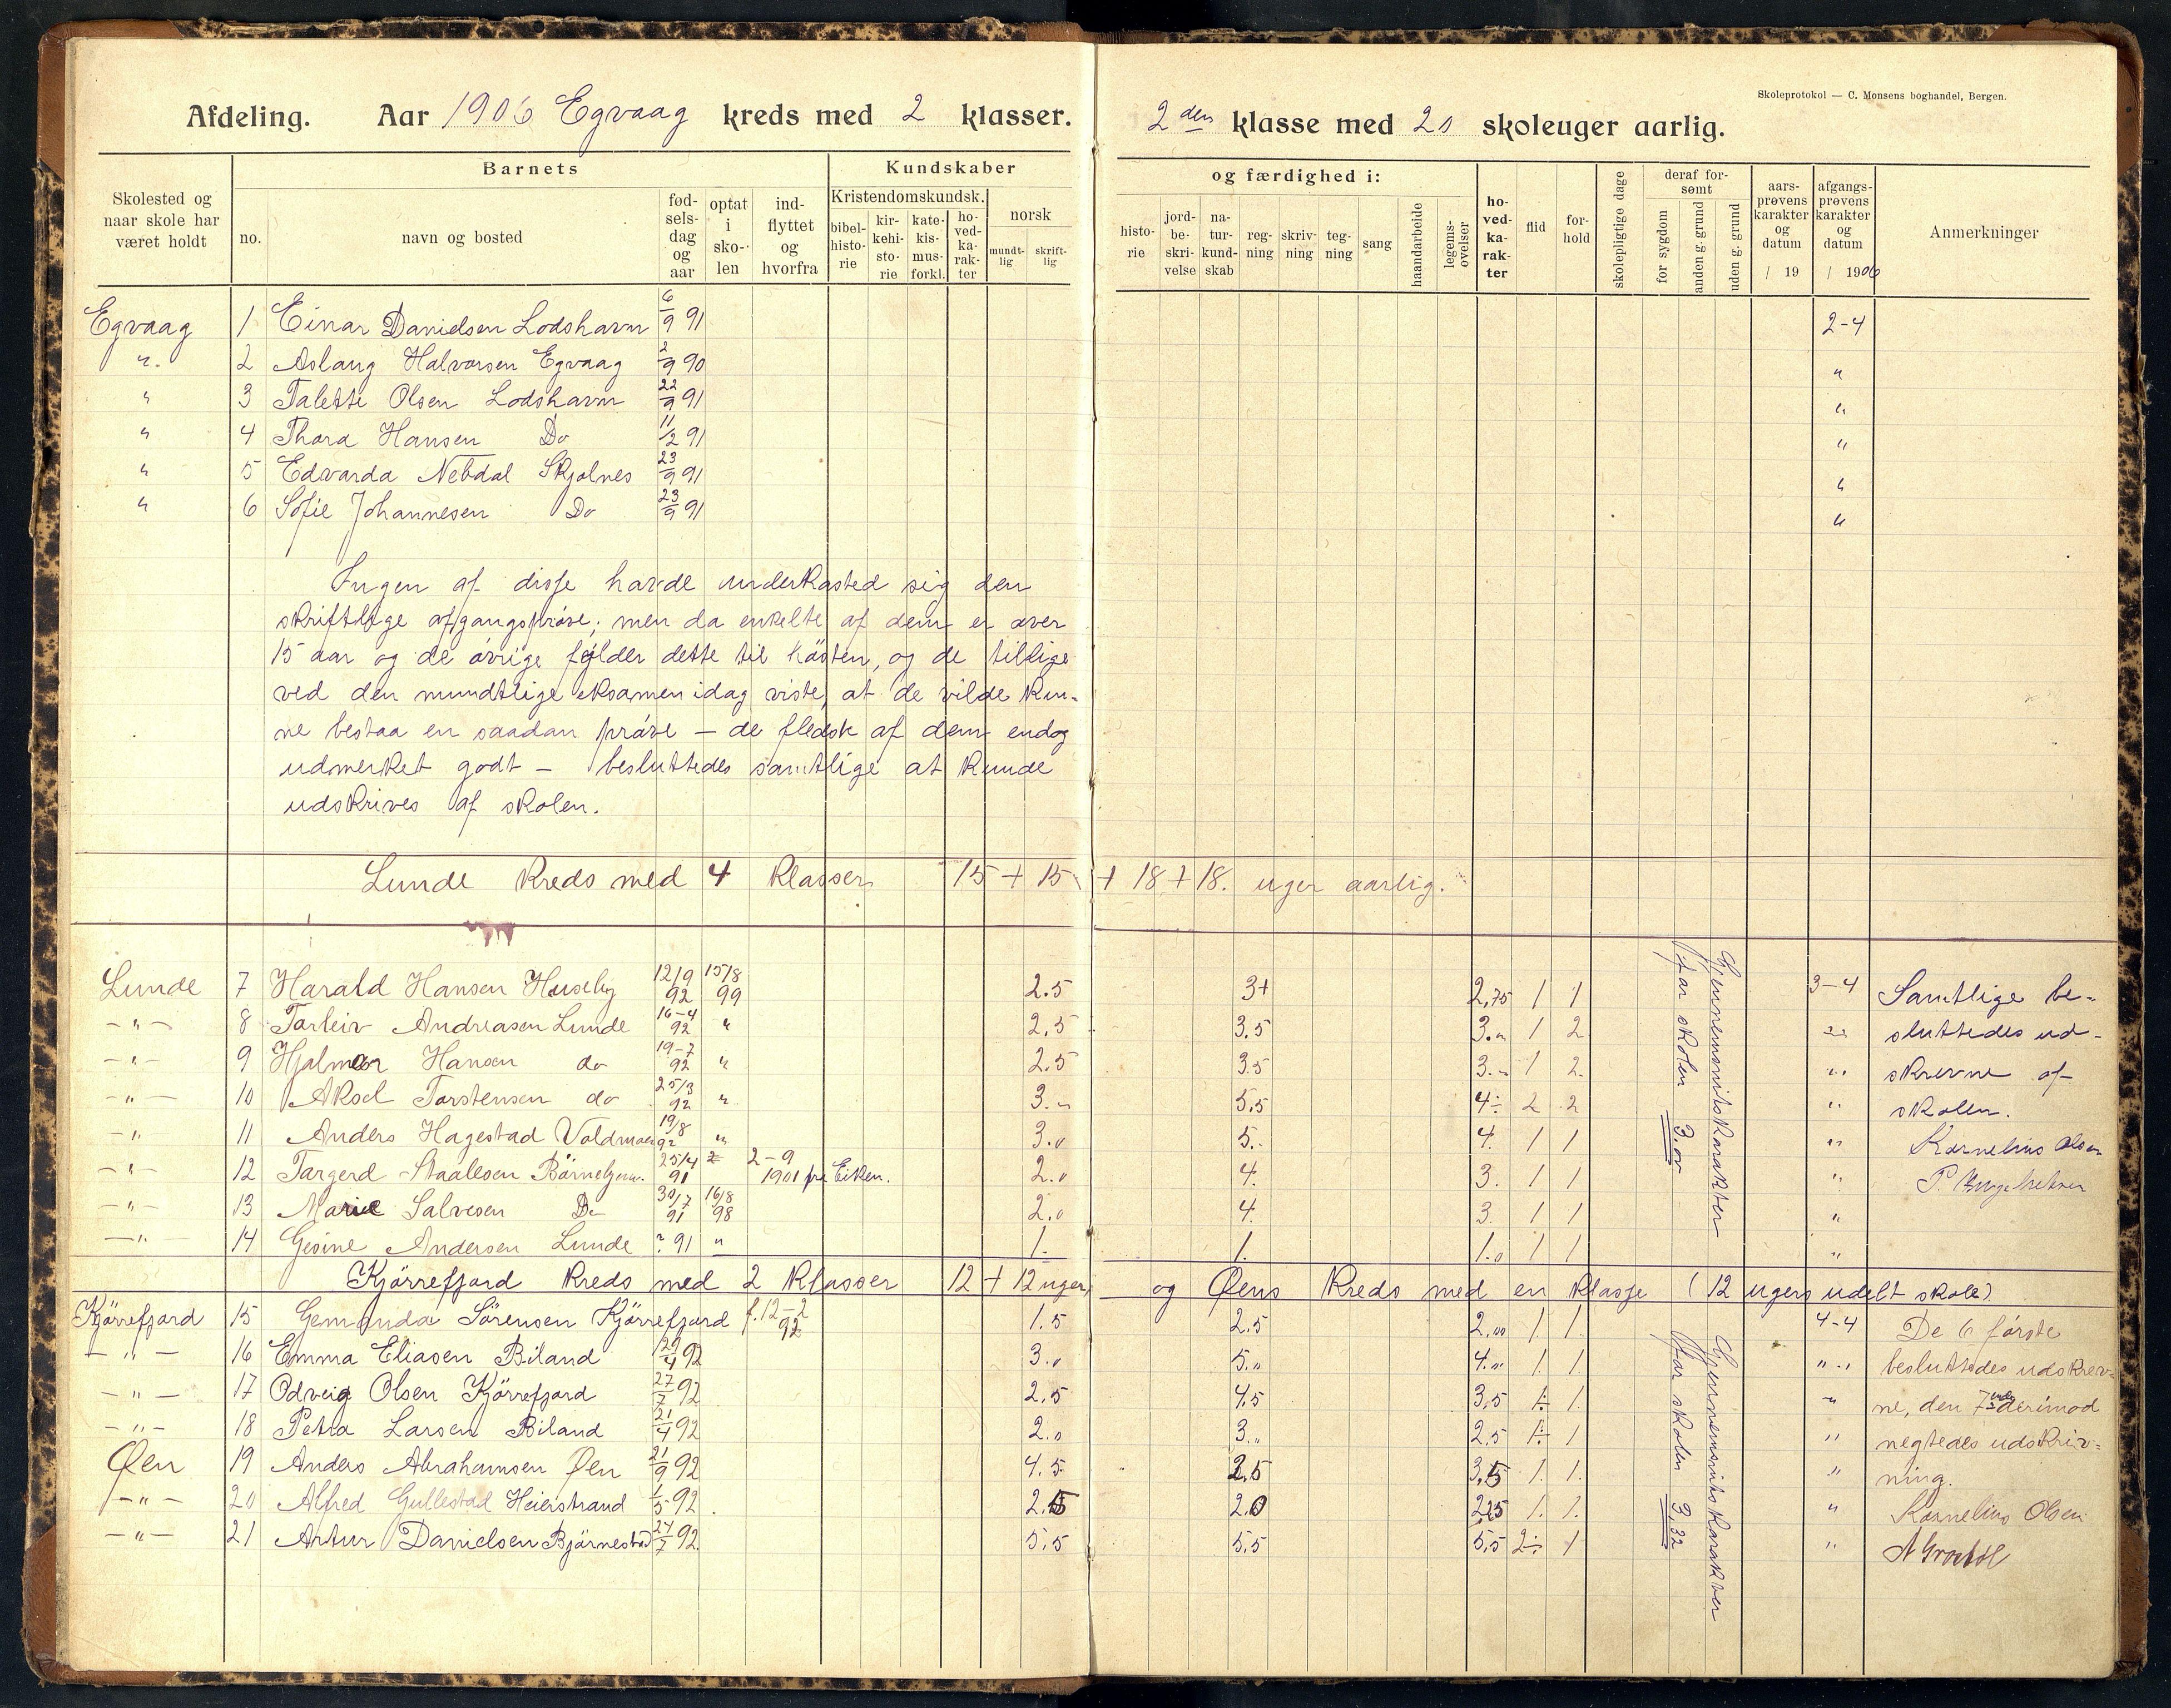 Skoleprotokol — C. Monsens boghandel, Bergen.
Afdeling. Aar 1906 Egvaag kreds med 2 klasser. 2den klasse med 20 skoleuger aarlig.
Skolested og naar skole har været holdt
Barnets
no.
navn og bosted
fød-sels-dag og aar
optat i sko-len
ind-flyttet og hvorfra
Kundskaber og færdighed i:
Kristendomskundsk.
bibel-histo-rie
kir-kehi-sto-rie
kate-kis-mus-forkl.
ho-ved-ka-rak-ter
norsk
mundt-lig
skrift-lig
histo-rie
jord-be-skri-velse
na-tur-kund-skab
reg-ning
skriv-ning
teg-ning
sang
haandarbeide
legems-øvelser
ho-ved-ka-rak-ter
flid
for-hold
skolepligtige dage
deraf for-sømt
for sygdom
anden g. grund
uden g. grund
aars-prøvens karakter og datum / 19
afgangs-prøvens karakter og datum / 1906
Anmerkninger
Egvaag 1 Einar Danielsen Lodshavn 6/9 91 2-4
" 2 Aslaug Halvorsen Egvaag 2/9 90 "
" 3 Talette Olsen Lodshavn 22/9 91 "
" 4 Thora Hansen Do 11/2 91 "
" 5 Edvarda Nebdal Skjolnes 23/9 91 "
" 6 Sofie Johannesen Do 23/9 91 "
Ingen af disse havde underkasted sig den
skriftlige afgangsprøve; men da enkelte af dem er over
15 aar og de øvrige fylder dette til høsten, og de tillige
ved den mundtlige eksamen idag viste, at de vilde kun-
ne bestaa en saadan prøve — de fledste af dem endog
udmerket godt — besluttedes samtlige at kunde
udskrives af skolen.
Lunde Kreds med 4 Klasser 15 + 15 + 18 + 18. uger aarlig.
Lunde 7 Harald Hansen Huseby 12/9 92 15/8 99 2.5 3+ 2,75 1 1 3-4 Samtlige be-
-"- 8 Tarleiv Andreasen Lunde 16-4 92 " 2.5 3.5 3." 1 2 " sluttedes ud-
-"- 9 Hjalmar Hansen do 19-7 92 " 2.5 3.5 3.- 1 2. " skrevne af
-"- 10 Aksel Torstensen do 25/3 92 " 3." 5.5 4÷ 2 2 " skolen.
-"- 11 Anders Hagestad Voldmoen 19/8 92 " 3.0 5.- 4. 1 1 " Kornelius Olsen
-"- 12 Targerd Staalesen 25/4 91 2-9 1901 fra Eiken. 2.0 4. 3. 1 1 "
-"- 13 Marie Salvesen Do 30/7 91 16/8 98 2.0 4. 3. 1 1 "
-"- 14 Gesine Andersen Lunde ? 91 " 1. 1. 1.0 1 1 "
Gjennemsnitskarakter
for skolen 3.0
Kjørrefjord Kreds med 2 Klasser 12 + 12 uger og Øens Kreds med en klasse (12 ugers udelt skole)
Kjørrefjord 15 Gemunda Sørensen Kjørrefjord f. 12-2 92 1.5 2.5 2,00 1 1. 4-4 De 6 første
-"- 16 Emma Eliasen Biland 29/4 92 3.0 5." 4." 1. 1. "-" besluttedes udskrev-
-"- 17 Odveig Olsen Kjørrefjord 27/7 92 2.5 4.5 3,5 1÷ 1. " ne, den 7nde derimod
-"- 18 Petra Larsen Biland 21/4 92 2.0 3." 2.5 1÷ 1 " negtedes udskriv-
Øen 19 Anders Abrahamsen Øen 21/9 92 4.5 2.5 3,5 1. 1. " ning.
-"- 20 Alfred Gullestad Heierstrand 1/5 92 2.5 2.0 2,25 1. 1. " Kornelius Olsen
-"- 21 Artur Danielsen Bjørnestad 24/7 92 5,5 5,5 5,5 2÷ 1 "
Gjennemsnitskarakter
for skolen 3,32